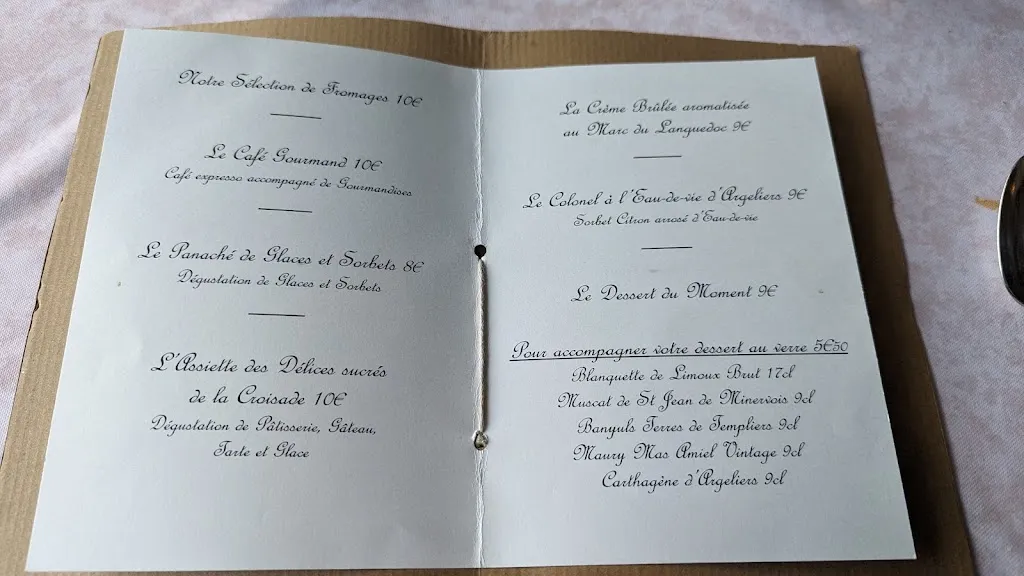 Notre Sélection de Fromages 10€
Le Café Gourmand 10€
Café expresso accompagné de Gourmandises
Le Panaché de Glaces et Sorbets 8€
Dégustation de Glaces et Sorbets
L'Assiette des Délices sucrés
de la Croisade 10€
Dégustation de Pâtisserie, Gâteau,
Tarte et Glace
La Crème Brûlée aromatisée
au Marc du Languedoc 9€
Le Colonel à l'Eau-de-vie d'Argeliers 9€
Sorbet Citron arrosé d'Eau-de-vie
Le Dessert du Moment 9€
Pour accompagner votre dessert au verre 5€50
Blanquette de Limoux Brut 17cl
Muscat de St Jean de Minervois 9cl
Banyuls Terres de Templiers 9cl
Maury Mas Amiel Vintage 9cl
Carthagène d'Argeliers 9cl